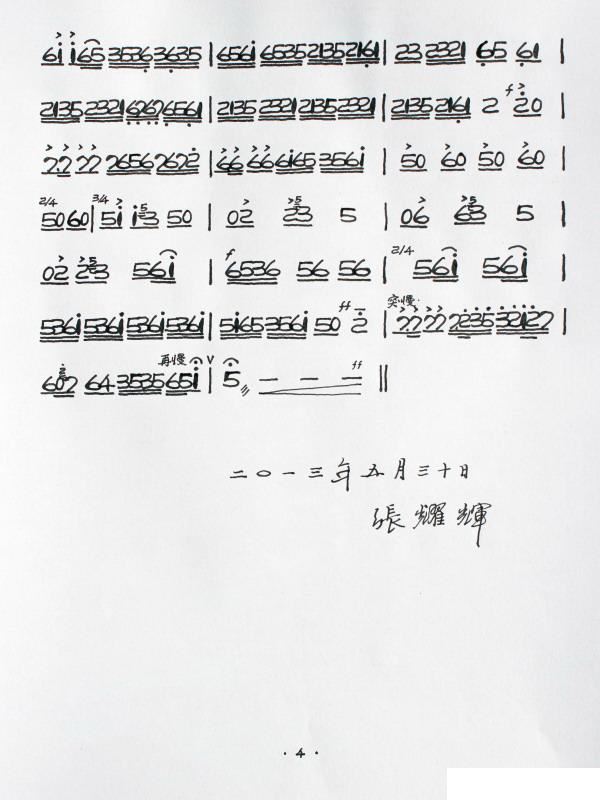 61165 35363635 | 6561 653521352161 | 23 2321 65 61 |
2135232167676561 | 2135232121352321 | 21352161 2 f 20 |
2222 26562672 | 666661653561 | 50 60 50 60 |
2/4 5060 | 3/4 51 153 50 | 02 353 5 | 06 653 5 |
02 253 561 | f 6536 56 56 | 2/4 561 561 |
5361536153615361 | 51653561 50 ff 2 | 突慢· 2222 223532127 |
607 64 3535651 再慢 V | 5 — — — ff ‖
二〇一三年五月三十日
張耀輝
· 4 ·